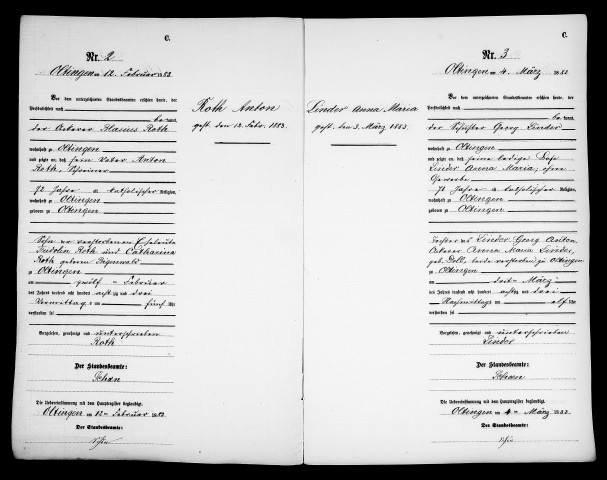 C.
Nr. 2
Oltingen am 12. Februar 1883.
Vor dem unterzeichneten Standesbeamten erschien heute, der
Persönlichkeit nach
be kannt,
der Ackerer Blasius Roth
wohnhaft zu Oltingen
und zeigte an, daß sein Vater Anton
Roth, Schreiner
72 Jahre alt katholischer Religion,
wohnhaft zu Oltingen
geboren zu Oltingen
Sohn der verstorbenen Eheleute
Fridolin Roth und Catharina
Roth geborene
zu Oltingen
am zwölf ten Februar
des Jahres tausend acht hundert achtzig und drei
Vormittags um fünf Uhr
verstorben sei
Vorgelesen, genehmigt und unterschrieben
Roth
Der Standesbeamte:
Die Uebereinstimmung mit dem Hauptregister beglaubigt.
Oltingen am 12ten Februar 1883.
Der Standesbeamte:
Roth Anton
gest. den 12. Febr. 1883.
Linder Anna Maria
gest. den 3. März 1883.
C.
Nr. 3
Oltingen am 4. März 1883
Vor dem unterzeichneten Standesbeamten erschien heute, der
Persönlichkeit nach
be kannt,
der Schuster Georg Linder
wohnhaft zu Oltingen
und zeigte an, daß seine ledige Base
Linder Anna Maria, ohne
Gewerbe
71 Jahre alt katholischer Religion,
wohnhaft zu Oltingen
geboren zu Oltingen
Tochter des Linder Georg Anton
Ackerer Anna Maria Linder,
geb. beide verstorben zu Oltingen
zu Oltingen
am drit ten März
des Jahres tausend acht hundert achtzig und drei
Nachmittags um elf Uhr
verstorben sei
Vorgelesen, genehmigt und unterschrieben
Linder
Der Standesbeamte:
Die Uebereinstimmung mit dem Hauptregister beglaubigt.
Oltingen am 4ten März 1883.
Der Standesbeamte: